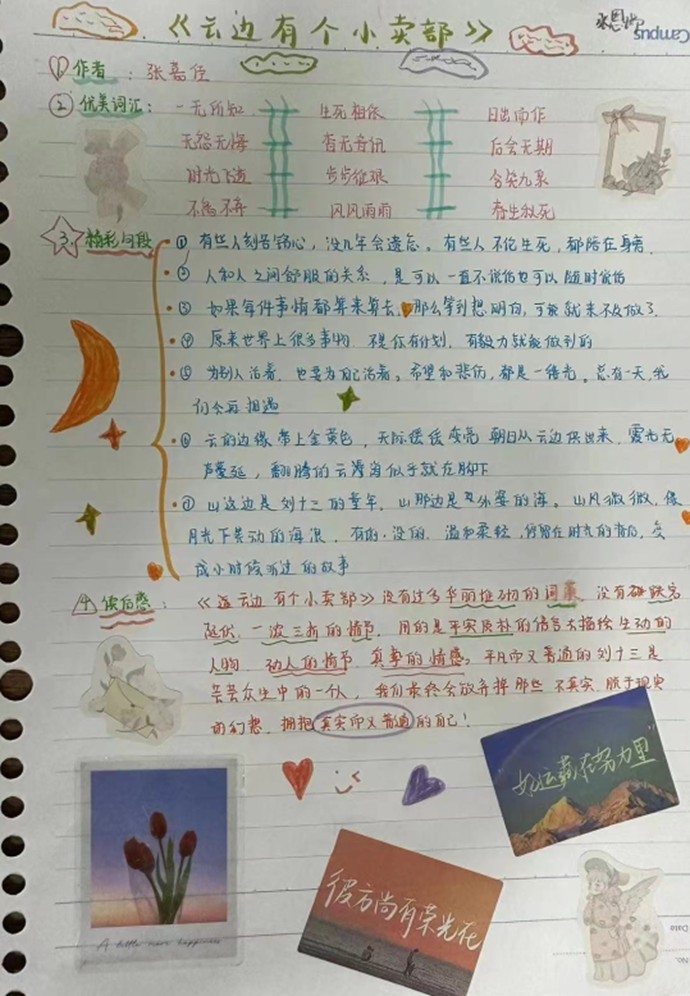 《云边有个小卖部》
Campus
① 作者 : 张嘉佳
② 优美词汇: 一无所知 生死相依 日出而作
无怨无悔 杳无音讯 后会无期
时光飞逝 步步维艰 含笑九泉
不偏不弃 风风雨雨 春生秋死
3. 精彩句段 ① 有些人刻骨铭心，没几年会遗忘。有些人不论生死，都陪在身旁.
② 人和人之间舒服的关系，是可以一直不说话也可以随时说话
③ 如果每件事情都算来算去，那么等到想明白，可能就来不及做了.
④ 原来世界上很多事物 不是你有计划，有毅力就能做到的
⑤ 为别人活着，也要为自己活着。希望和悲伤，都是一缕光。总有一天，我
们会再相遇
⑥ 云的边缘带上金黄色，天际缓缓变亮 朝日从云边供出来，霞光无
声蔓延，翻腾的云海似乎就在脚下
⑦ 山这边是刘十三的童年，山那边是外婆的海。山风微微，像
月光下晃动的海浪，有的·没的，温和柔软，停留在时光的背后，变
成小时候听过的故事
4 读后感: 《逅云边有个小卖部》没有过多华丽堆砌的词藻 没有跌宕
起伏，一波三折的情节，用的是平实质朴的语言去描绘生动的
人物 动人的情节 真挚的情感。平凡而又普通的刘十三是
芸芸众生中的一个人，我们最终会放弃掉那些不真实 脱于现实
的幻想，拥抱真实而又普通的自己！
"好运藏在努力里"
彼方尚有荣光在
A little more happiness
Date
No.